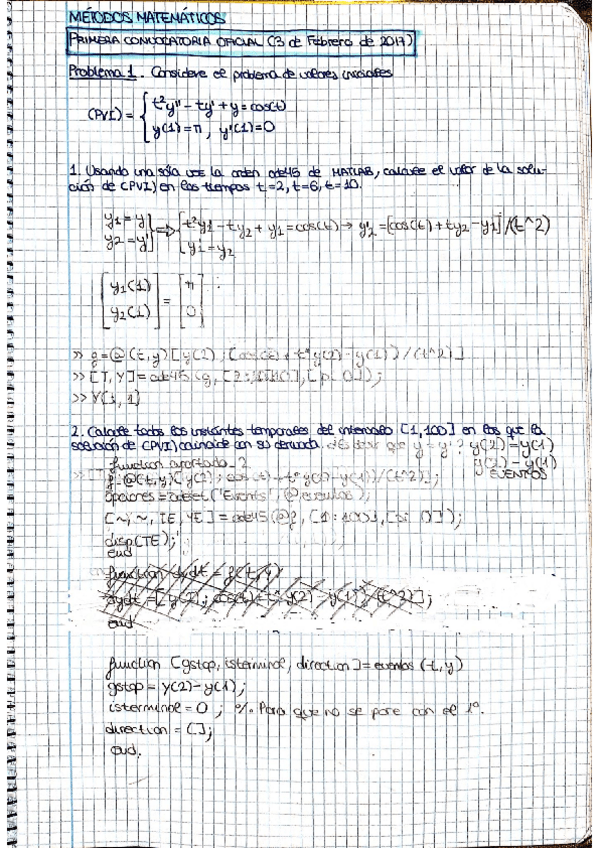 MÉTODOS MATEMÁTICOS
PRIMERA CONVOCATORIA OFICIAL (3 de Febrero de 2017)
Problema 1. Considere el problema de valores iniciales
(PVI) = { t²y'' - ty' + y = cos(t)
y(1) = π, y'(1) = 0
1. Usando una sola vez la orden ode45 de MATLAB, calcule el valor de la solu-
ción de (PVI) en los tiempos t=2, t=6, t=10.
y1 = y
y2 = y' } => { t²y2' - ty2 + y1 = cos(t) → y2' = [cos(t) + ty2 - y1] / (t^2)
y1' = y2
[y1(1)
y2(1)] = [π
0]
>> g = @(t,y) [y(2); [cos(t) + t*y(2) - y(1)] / (t^2)]
>> [T,Y] = ode45(g, [pi 0]);
>> Y(:,1)
2. Calcule todos los instantes temporales del intervalo [1,100] en los que la
solución de (PVI) coincide con su derivada. es decir que y = y'? y(2) = y(1)
function apartado_2 y(2) - y(1)
EVENTOS
@(t,y) [y(2); cos(t) + t*y(2) - y(1)) / (t^2)];
opciones = odeset('Events', @eventos);
[~, ~, TE, YE] = ode45(@g, [pi 0]);
disp(TE);
end
function dydt = g(t,y)
dydt = [y(2); cos(t) + t*y(2) - y(1)) / (t^2)];
end
function [gstop, isterminal, direction] = eventos(t,y)
gstop = y(2) - y(1);
isterminal = 0; %. Para que no se pare con el 1º.
direction = [];
end.